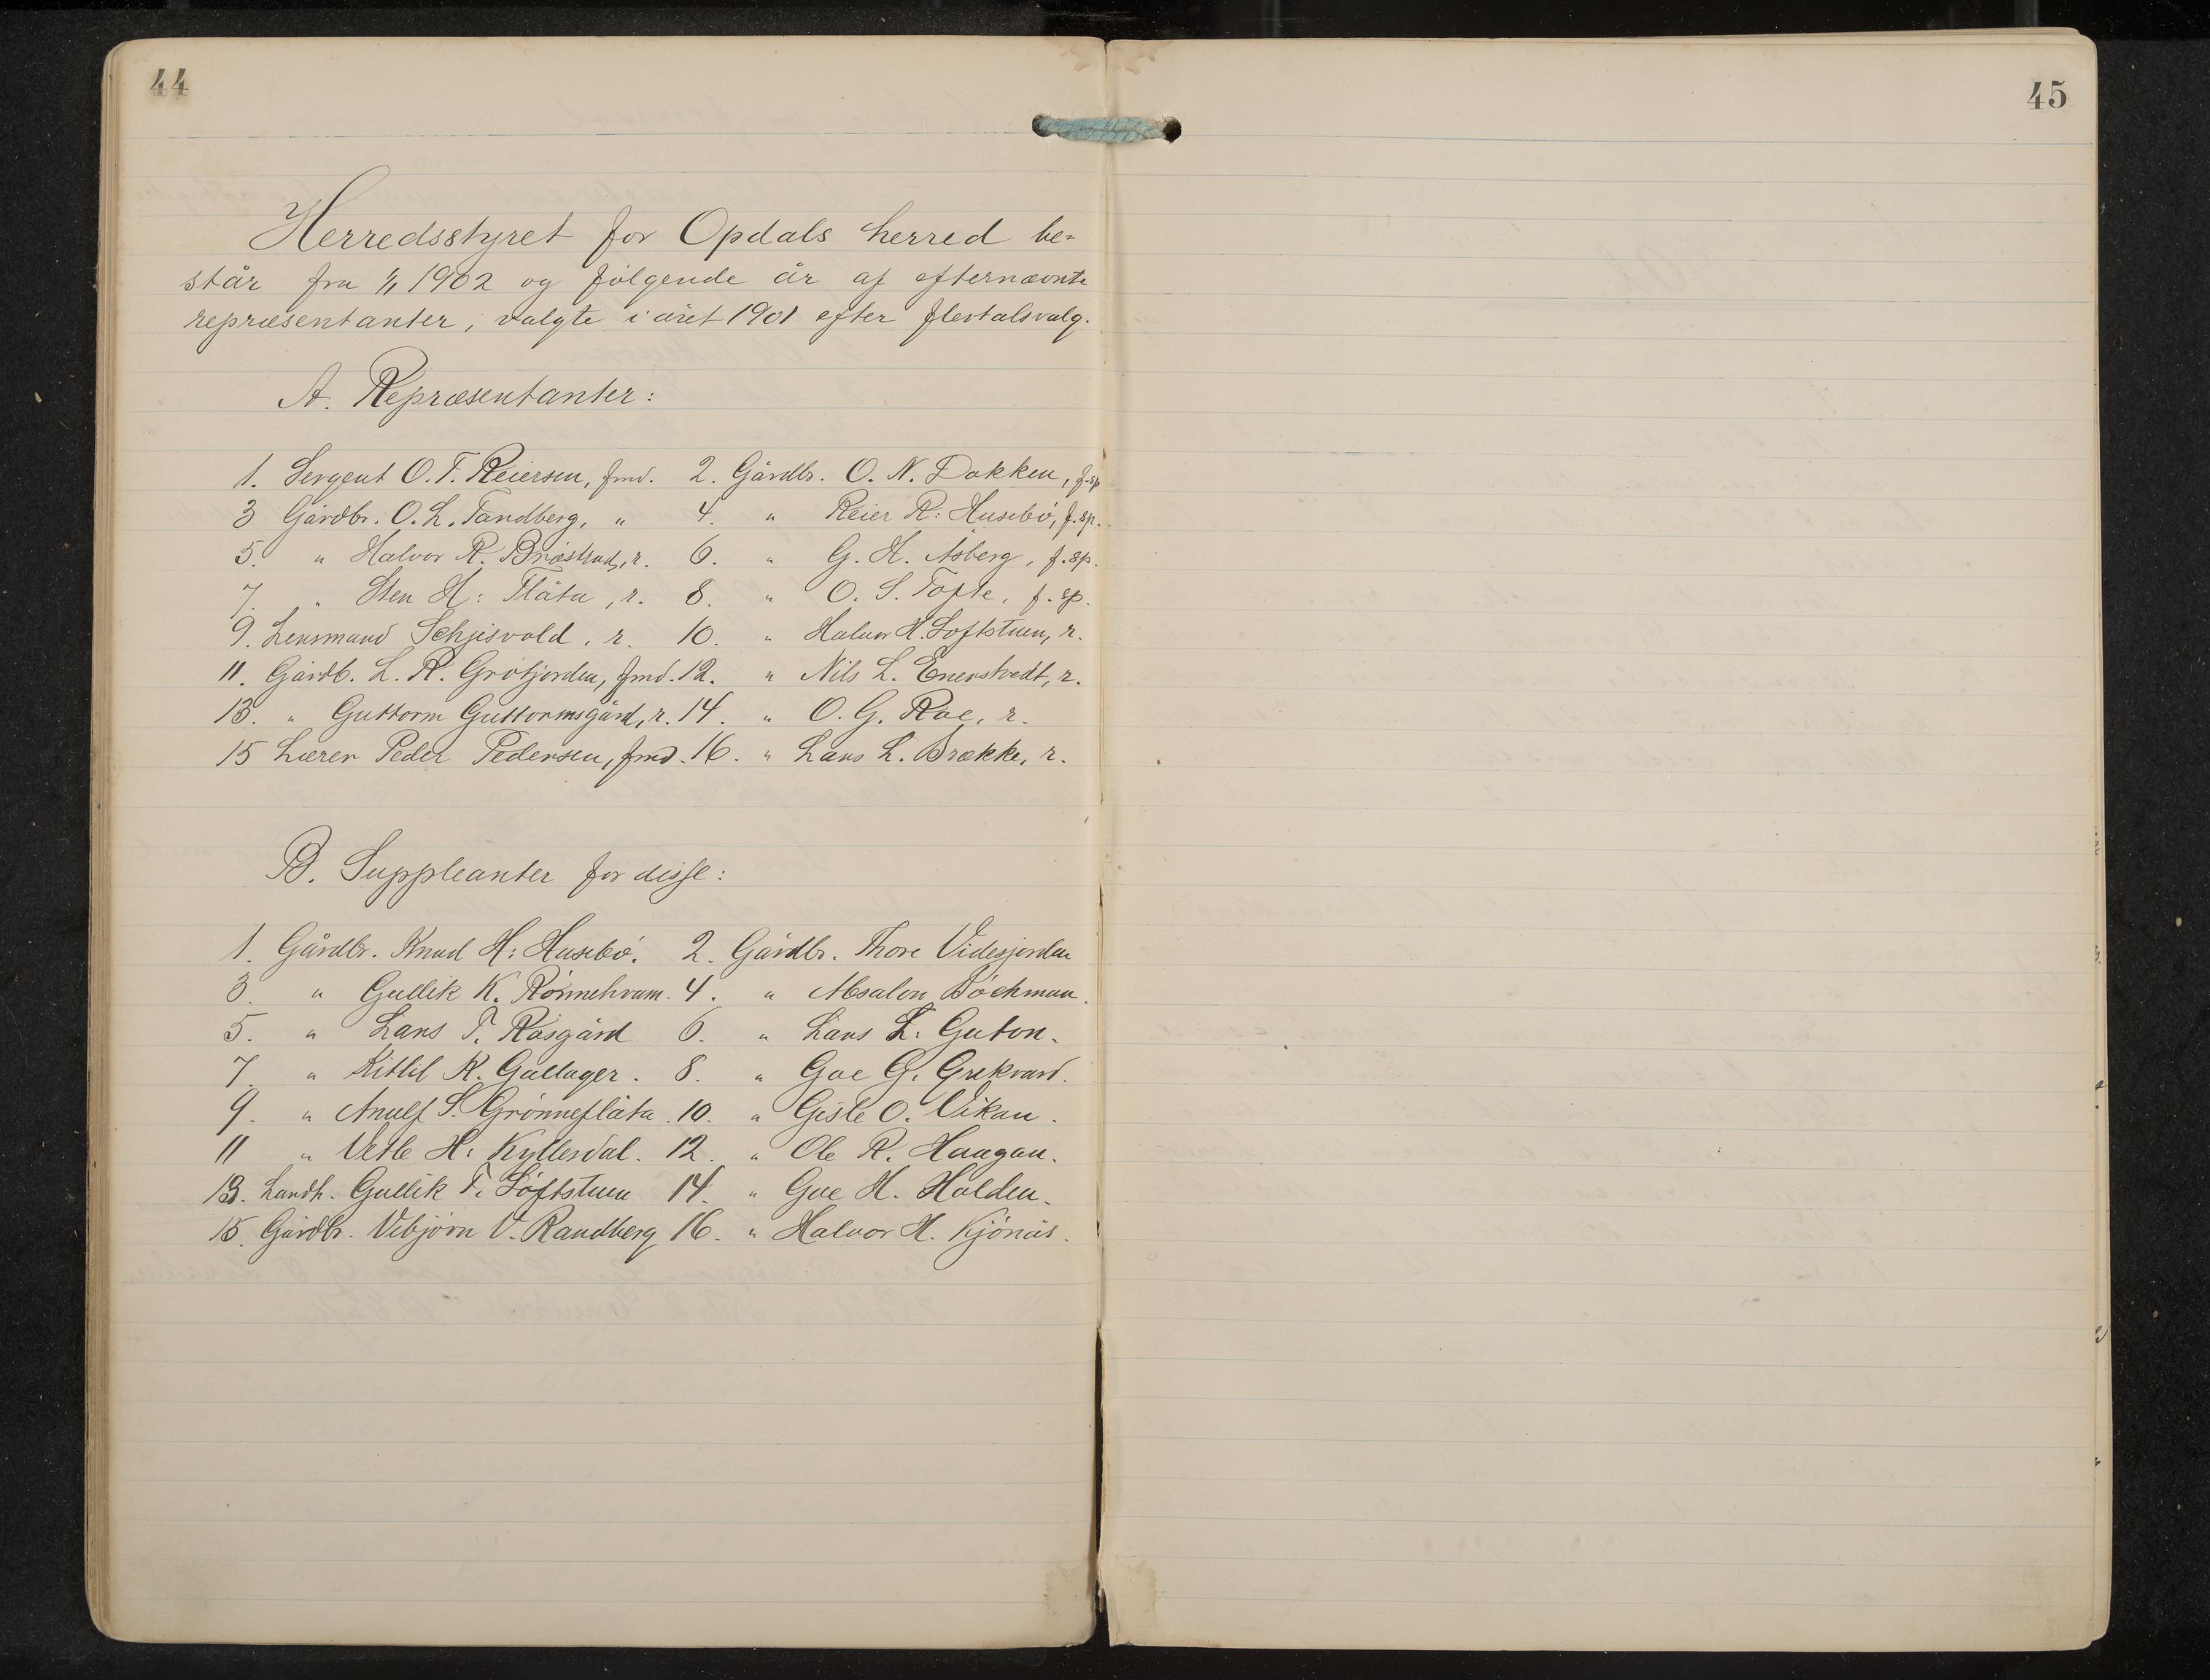 44
45
Herredsstyret for Opdals herred be=
står fra 1/1 1902 og følgende år af efternævnte
repræsentanter, valgte i året 1901 efter flertalsvalg.
A. Repræsentanter:
1. Sergent O. T. Reiersen, fmd. 2. Gårdbr. O. N. Dokken, f.sp
3 Gårdbr. O. L. Tandberg, " 4. " Reier R: Husebø, f.sp.
5. " Halvor R. r. 6. " G. H. Åsberg, f.sp.
7. " Sten H: Flåta, r. 8. " O. S. Tofte, f.sp.
9. Lensmand Schjisvold, r. 10. " Halvor H. Loftstuen, r.
11. Gårdb. L. R. Grøtjorden, fmd. 12. " Nils L. Enerstvedt, r.
13. " Guttorm Guttormsgård, r. 14. " O. G. Roe, r.
15 Lærer Peder Pedersen, fmd. 16. " Lars L. Brække, r.
B. Suppleanter for disse:
1. Gårdbr. Knud H: Husebø. 2. Gårdbr. Thore Videsjorden
3. " Gullik K. 4. " Absalon Bøckman.
5. " Lars T. Råsgård 6. " Lars L. Guton.
7. " Kittil K. Gællager. 8. " Goe G.
9. " Anulf S. Grønneflåta. 10. " Gisle O. Vikan.
11 " Vetle H: Kyllesdal. 12. " Ole R. Haugan.
13. Landh. Gullik T. Loftstuen 14. " Goe H. Holden.
15. Gårdbr. Vebjørn V. Randberg 16. " Halvor H. Kjønås.